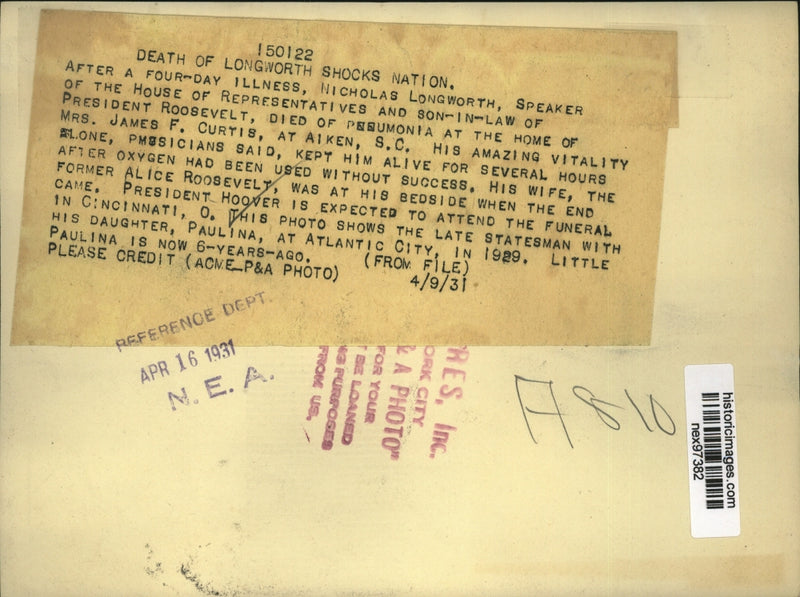 150122
DEATH OF LONGWORTH SHOCKS NATION.
AFTER A FOUR-DAY ILLNESS, NICHOLAS LONGWORTH, SPEAKER
OF THE HOUSE OF REPRESENTATIVES AND SON-IN-LAW OF
PRESIDENT ROOSEVELT, DIED OF PNEUMONIA AT THE HOME OF
MRS. JAMES F. CURTIS, AT AIKEN, S.C. HIS AMAZING VITALITY
ALONE, PHYSICIANS SAID, KEPT HIM ALIVE FOR SEVERAL HOURS
AFTER OXYGEN HAD BEEN USED WITHOUT SUCCESS. HIS WIFE, THE
FORMER ALICE ROOSEVELT, WAS AT HIS BEDSIDE WHEN THE END
CAME. PRESIDENT HOOVER IS EXPECTED TO ATTEND THE FUNERAL
IN CINCINNATI, O. THIS PHOTO SHOWS THE LATE STATESMAN WITH
HIS DAUGHTER, PAULINA, AT ATLANTIC CITY, IN 1929. LITTLE
PAULINA IS NOW 6-YEARS-AGO. (FROM FILE)
PLEASE CREDIT (ACME-P&A PHOTO) 4/9/31
REFERENCE DEPT.
APR 16 1931
N. E. A.
RES, Inc.
ORK CITY
& A PHOTO"
FOR YOUR
BE LOANED
NG PURPOSES
FROM US.
A 810
historicimages.com
nex97382